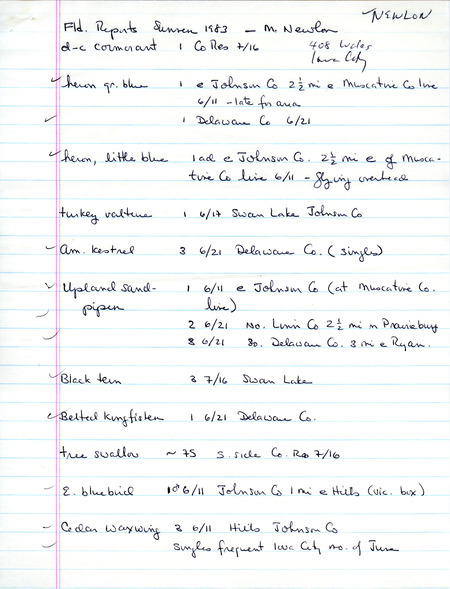 NEWLON
Fld. Reports Summer 1983 — M. Newlon
d-c cormorant 1 Co Res 7/16 408
Iowa City
heron gr. blue 1 e Johnson Co 2½ mi e Muscatine Co line
6/11 - late for area
1 Delaware Co 6/21
heron, little blue 1 ad e Johnson Co. 2½ mi e of Musca-
tine Co line 6/11 - flying overhead
turkey vulture 1 6/17 Swan Lake Johnson Co
Am. Kestrel 3 6/21 Delaware Co. (singles)
Upland Sand- 1 6/11 e Johnson Co (at Muscatine Co.
piper line)
2 6/21 No. Linn Co 2½ mi n Prairieburg
8 6/21 So. Delaware Co. 3 mi e Ryan.
Black tern 3 7/16 Swan Lake
Belted Kingfisher 1 6/21 Delaware Co.
tree swallow ~ 75 S. side Co. Res 7/16
E. bluebird 1♂ 6/11 Johnson Co 1 mi e Hills (vic. box)
Cedar Waxwing 3 6/11 Hills Johnson Co
singles frequent Iowa City mo. of June